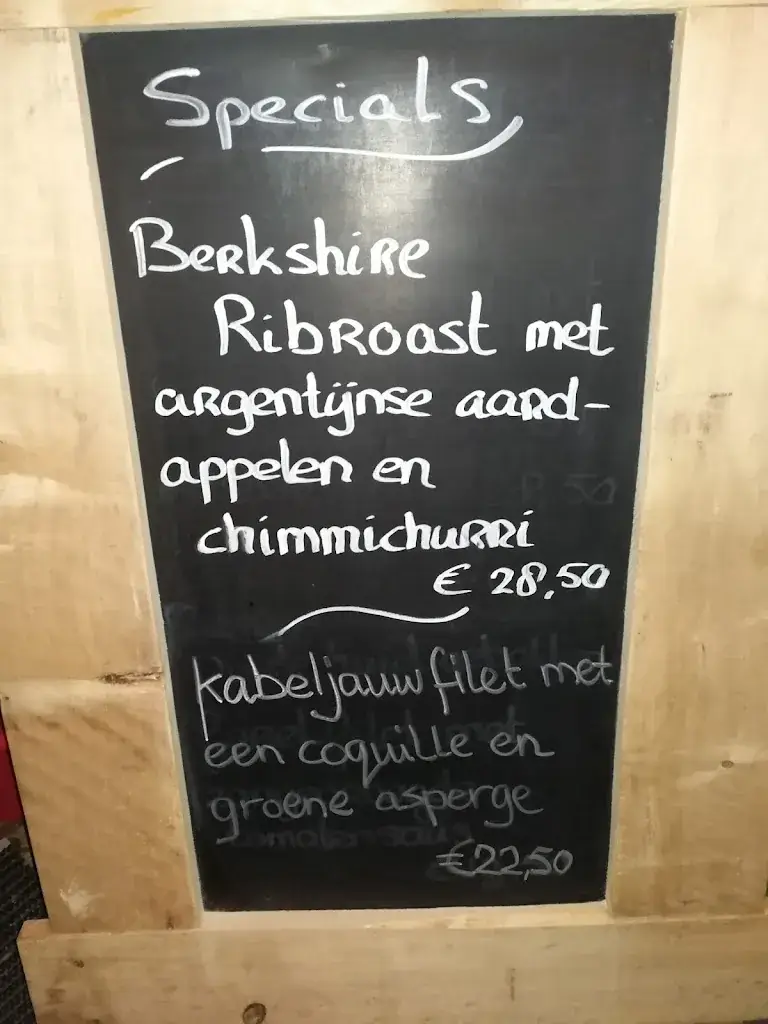 Specials
Berkshire
Ribroast met
argentijnse aard-
appelen en
chimmichurri
€ 28,50
kabeljauw filet met
een coquille en
groene asperge
€22,50